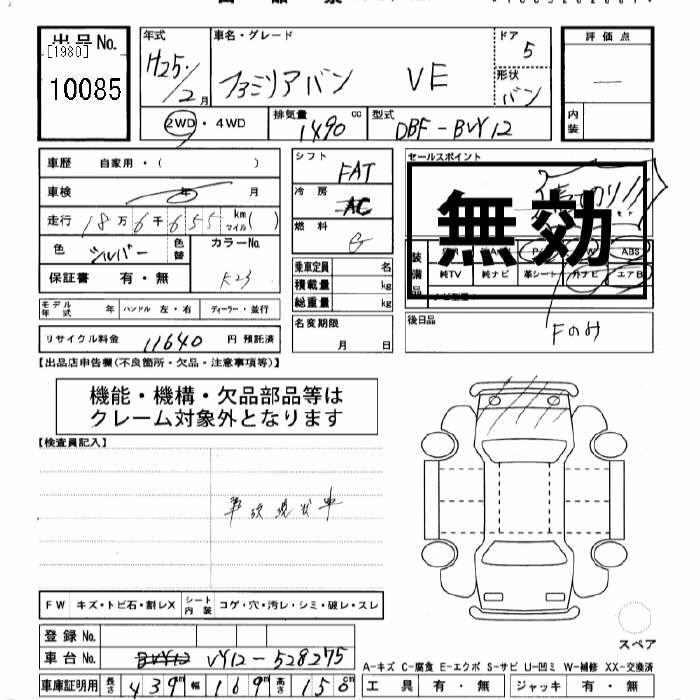 出品No.
[1980]
10085
年式
H25/2月
車名・グレード
ファミリアバン VE
ドア
5
形状
バン
評価点
—
内装
2WD・4WD
排気量
1490 cc
型式
DBF-BVY12
車歴 自家用・( )
車検 年 月
走行 18万6千655 km マイル( )
色
シルバー
色替
カラーNo.
K23
保証書 有・無
モデル年式 年 ハンドル 左・右 ディーラー・並行
リサイクル料金 11640 円 預託済
シフト
FAT
冷房
AC
燃料
G
乗車定員 名
積載量 kg
総重量 kg
名変期限
月 日
セールスポイント
売切り!!
無効
装備品
ABS
純TV 純ナビ 革シート 外ナビ エアB
後日品
Fのみ
【出品店申告欄(不良箇所・欠品・注意事項等)】
機能・機構・欠品部品等は
クレーム対象外となります
【検査員記入】
事故現状車
FW キズ・トビ石・割レX シート内装 コゲ・穴・汚レ・シミ・破レ・スレ
登録No.
車台No. BVY12 VY12-528275
車庫証明用 長さ 439 cm 幅 169 cm 高さ 150 cm
スペア
A-キズ C-腐食 E-エクボ S-サビ U-凹ミ W-補修 XX-交換済
工具 有・無 ジャッキ 有・無